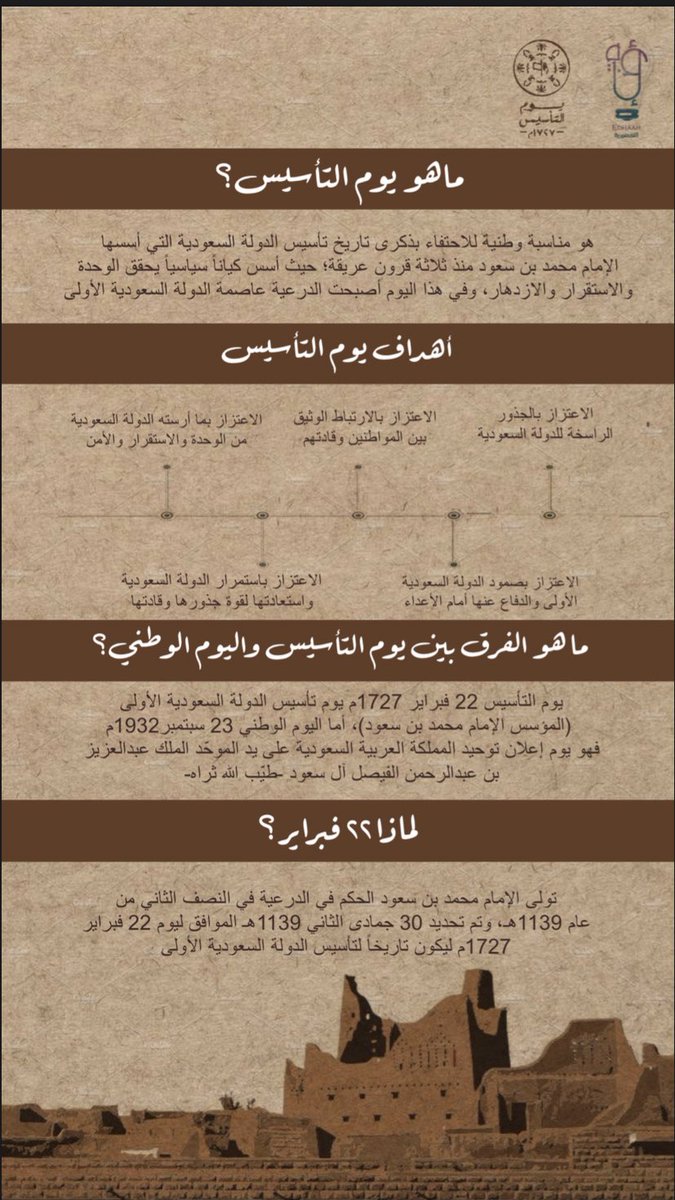 يوم
التأسيس
١٧٢٧م
EDHAAH
ماهو يوم التأسيس؟
هو مناسبة وطنية للاحتفاء بذكرى تاريخ تأسيس الدولة السعودية التي أسسها
الإمام محمد بن سعود منذ ثلاثة قرون عريقة؛ حيث أسس كياناً سياسياً يحقق الوحدة
والاستقرار والازدهار، وفي هذا اليوم أصبحت الدرعية عاصمة الدولة السعودية الأولى
أهداف يوم التأسيس
الاعتزاز بالجذور
الراسخة للدولة السعودية
الاعتزاز بالارتباط الوثيق
بين المواطنين وقادتهم
الاعتزاز بما أرسته الدولة السعودية
من الوحدة والاستقرار والأمن
الاعتزاز بصمود الدولة السعودية
الأولى والدفاع عنها أمام الأعداء
الاعتزاز باستمرار الدولة السعودية
واستعادتها لقوة جذورها وقادتها
ما هو الفرق بين يوم التأسيس واليوم الوطني؟
يوم التأسيس 22 فبراير 1727م يوم تأسيس الدولة السعودية الأولى
(المؤسس الإمام محمد بن سعود)، أما اليوم الوطني 23 سبتمبر1932م
فهو يوم إعلان توحيد المملكة العربية السعودية على يد الموحّد الملك عبدالعزيز
بن عبدالرحمن الفيصل آل سعود -طيّب الله ثراه-
لماذا ٢٢ فبراير؟
تولى الإمام محمد بن سعود الحكم في الدرعية في النصف الثاني من
عام 1139هـ، وتم تحديد 30 جمادى الثاني 1139هـ الموافق ليوم 22 فبراير
1727م ليكون تاريخاً لتأسيس الدولة السعودية الأولى